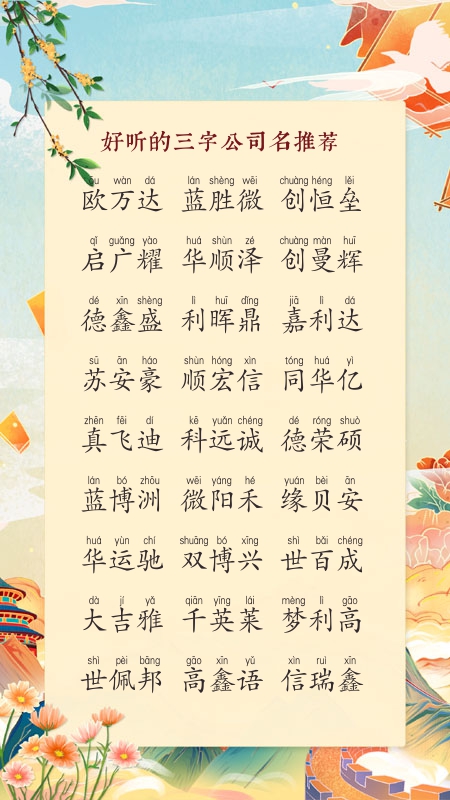 好听的三字公司名推荐
ōu wàn dá lán shèng wēi chuàng héng lěi
欧万达 蓝胜微 创恒垒
qǐ guǎng yào huá shùn zé chuàng màn huī
启广耀 华顺泽 创曼辉
dé xīn shèng lì huī dǐng jiā lì dá
德鑫盛 利晖鼎 嘉利达
sū ān háo shùn hóng xìn tóng huá yì
苏安豪 顺宏信 同华亿
zhēn fēi dí kē yuǎn chéng dé róng shuò
真飞迪 科远诚 德荣硕
lán bó zhōu wēi yáng hé yuán bèi ān
蓝博洲 微阳禾 缘贝安
huá yùn chí shuāng bó xīng shì bǎi chéng
华运驰 双博兴 世百成
dà jí yǎ qiān yīng lái mèng lì gāo
大吉雅 千英莱 梦利高
shì pèi bāng gāo xīn yǔ xìn ruì xīn
世佩邦 高鑫语 信瑞鑫